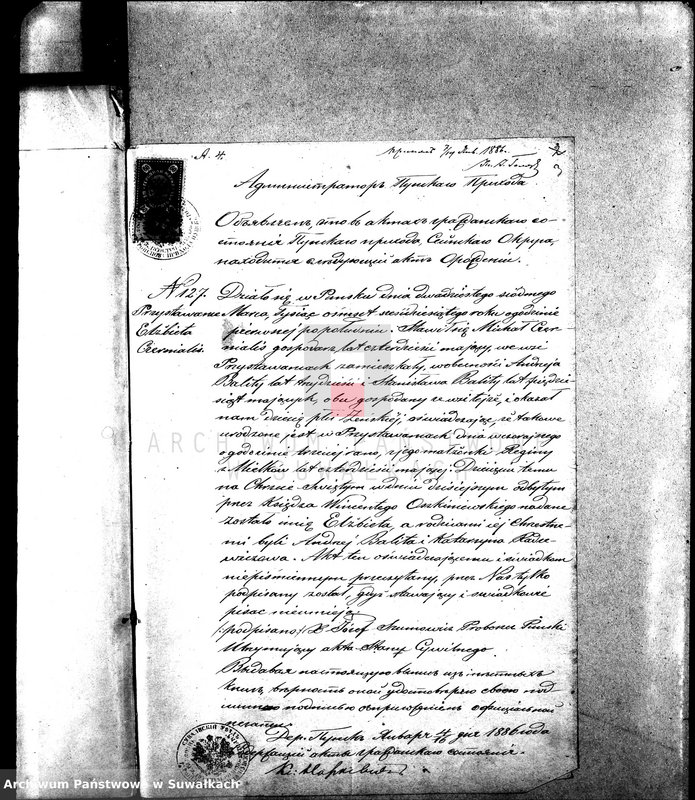 А. 4.
1886.
Администраторъ Пунскаго Прихода
Объявляетъ, что въ актахъ гражданскаго со-
стоянія Пунскаго прихода, Сейнскаго Округа,
находится слѣдующій актъ о рожденіи.
N 127.
Przystawańce
Elżbieta
Czermalis.
Działo się w Puńsku dnia dwudziestego siódmego
Marca, tysiąc osiemset sześćdziesiątego roku o godzinie
pierwszej po południu. Stawił się Michał Czer-
malis gospodarz lat czterdzieści mający, we wsi
Przystawańcach zamieszkały, w obecności Andrzeja
Bality lat trzydzieści i Stanisława Bality lat pięćdzie-
siąt mających, obu gospodarzy w wsi tejże, i okazał
nam dziecię płci żeńskiej, oświadczając, iż takowe
urodzone jest w Przystawańcach dnia wczorajszego
o godzinie trzeciej rano, z jego małżonki Reginy
z Miełków lat czterdzieści mającej. Dziecięciu temu
na Chrzcie Świętym w dniu dzisiejszym odbytym
przez Księdza Wincentego nadane
zostało imię Elżbieta, a rodzicami jej Chrzestne-
mi byli Andrzej Balita i Katarzyna
Akt ten oświadczającemu i świadkom
niepiśmiennym przeczytany, przez Nas tylko
podpisany został, gdyż stawający i świadkowie
pisać nieumieją.
(podpisano) X Józef Szumowicz Proboszcz Puński
Utrzymujący akta Stanu Cywilnego.
Выдавая настоящую выпись изъ
книгъ, вѣрность оной удостовѣряю своею под-
писью съ приложеніемъ оффиціальной
печати.
Дер. Пунскъ Января 4/16 дня 1886 года
акты гражданскаго состоянія.
ARCHIWUM PAŃSTWOWE
W SUWAŁKACH
Archiwum Państwowe w Suwałkach